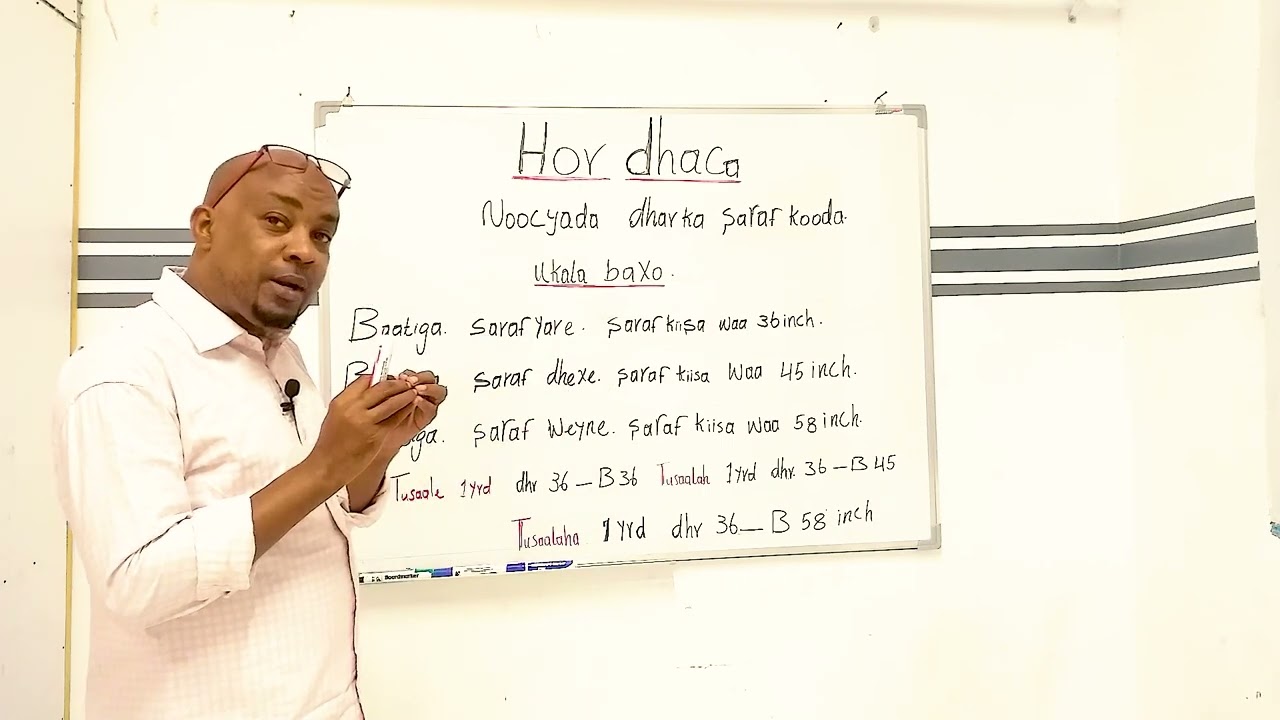 Hor dhaca
Noocyada dharka saraf kooda
Ukala baxo.
Baatiga. saraf yare. saraf kiisa waa 36 inch.
saraf dhexe. saraf kiisa waa 45 inch.
saraf weyne. saraf kiisa waa 58 inch.
Tusaale 1 yrd dhr 36 – B 36 Tusaalah 1 yrd dhr. 36 – B 45
Tusaalaha 1 yrd dhr 36 – B 58 inch
Boardmarker